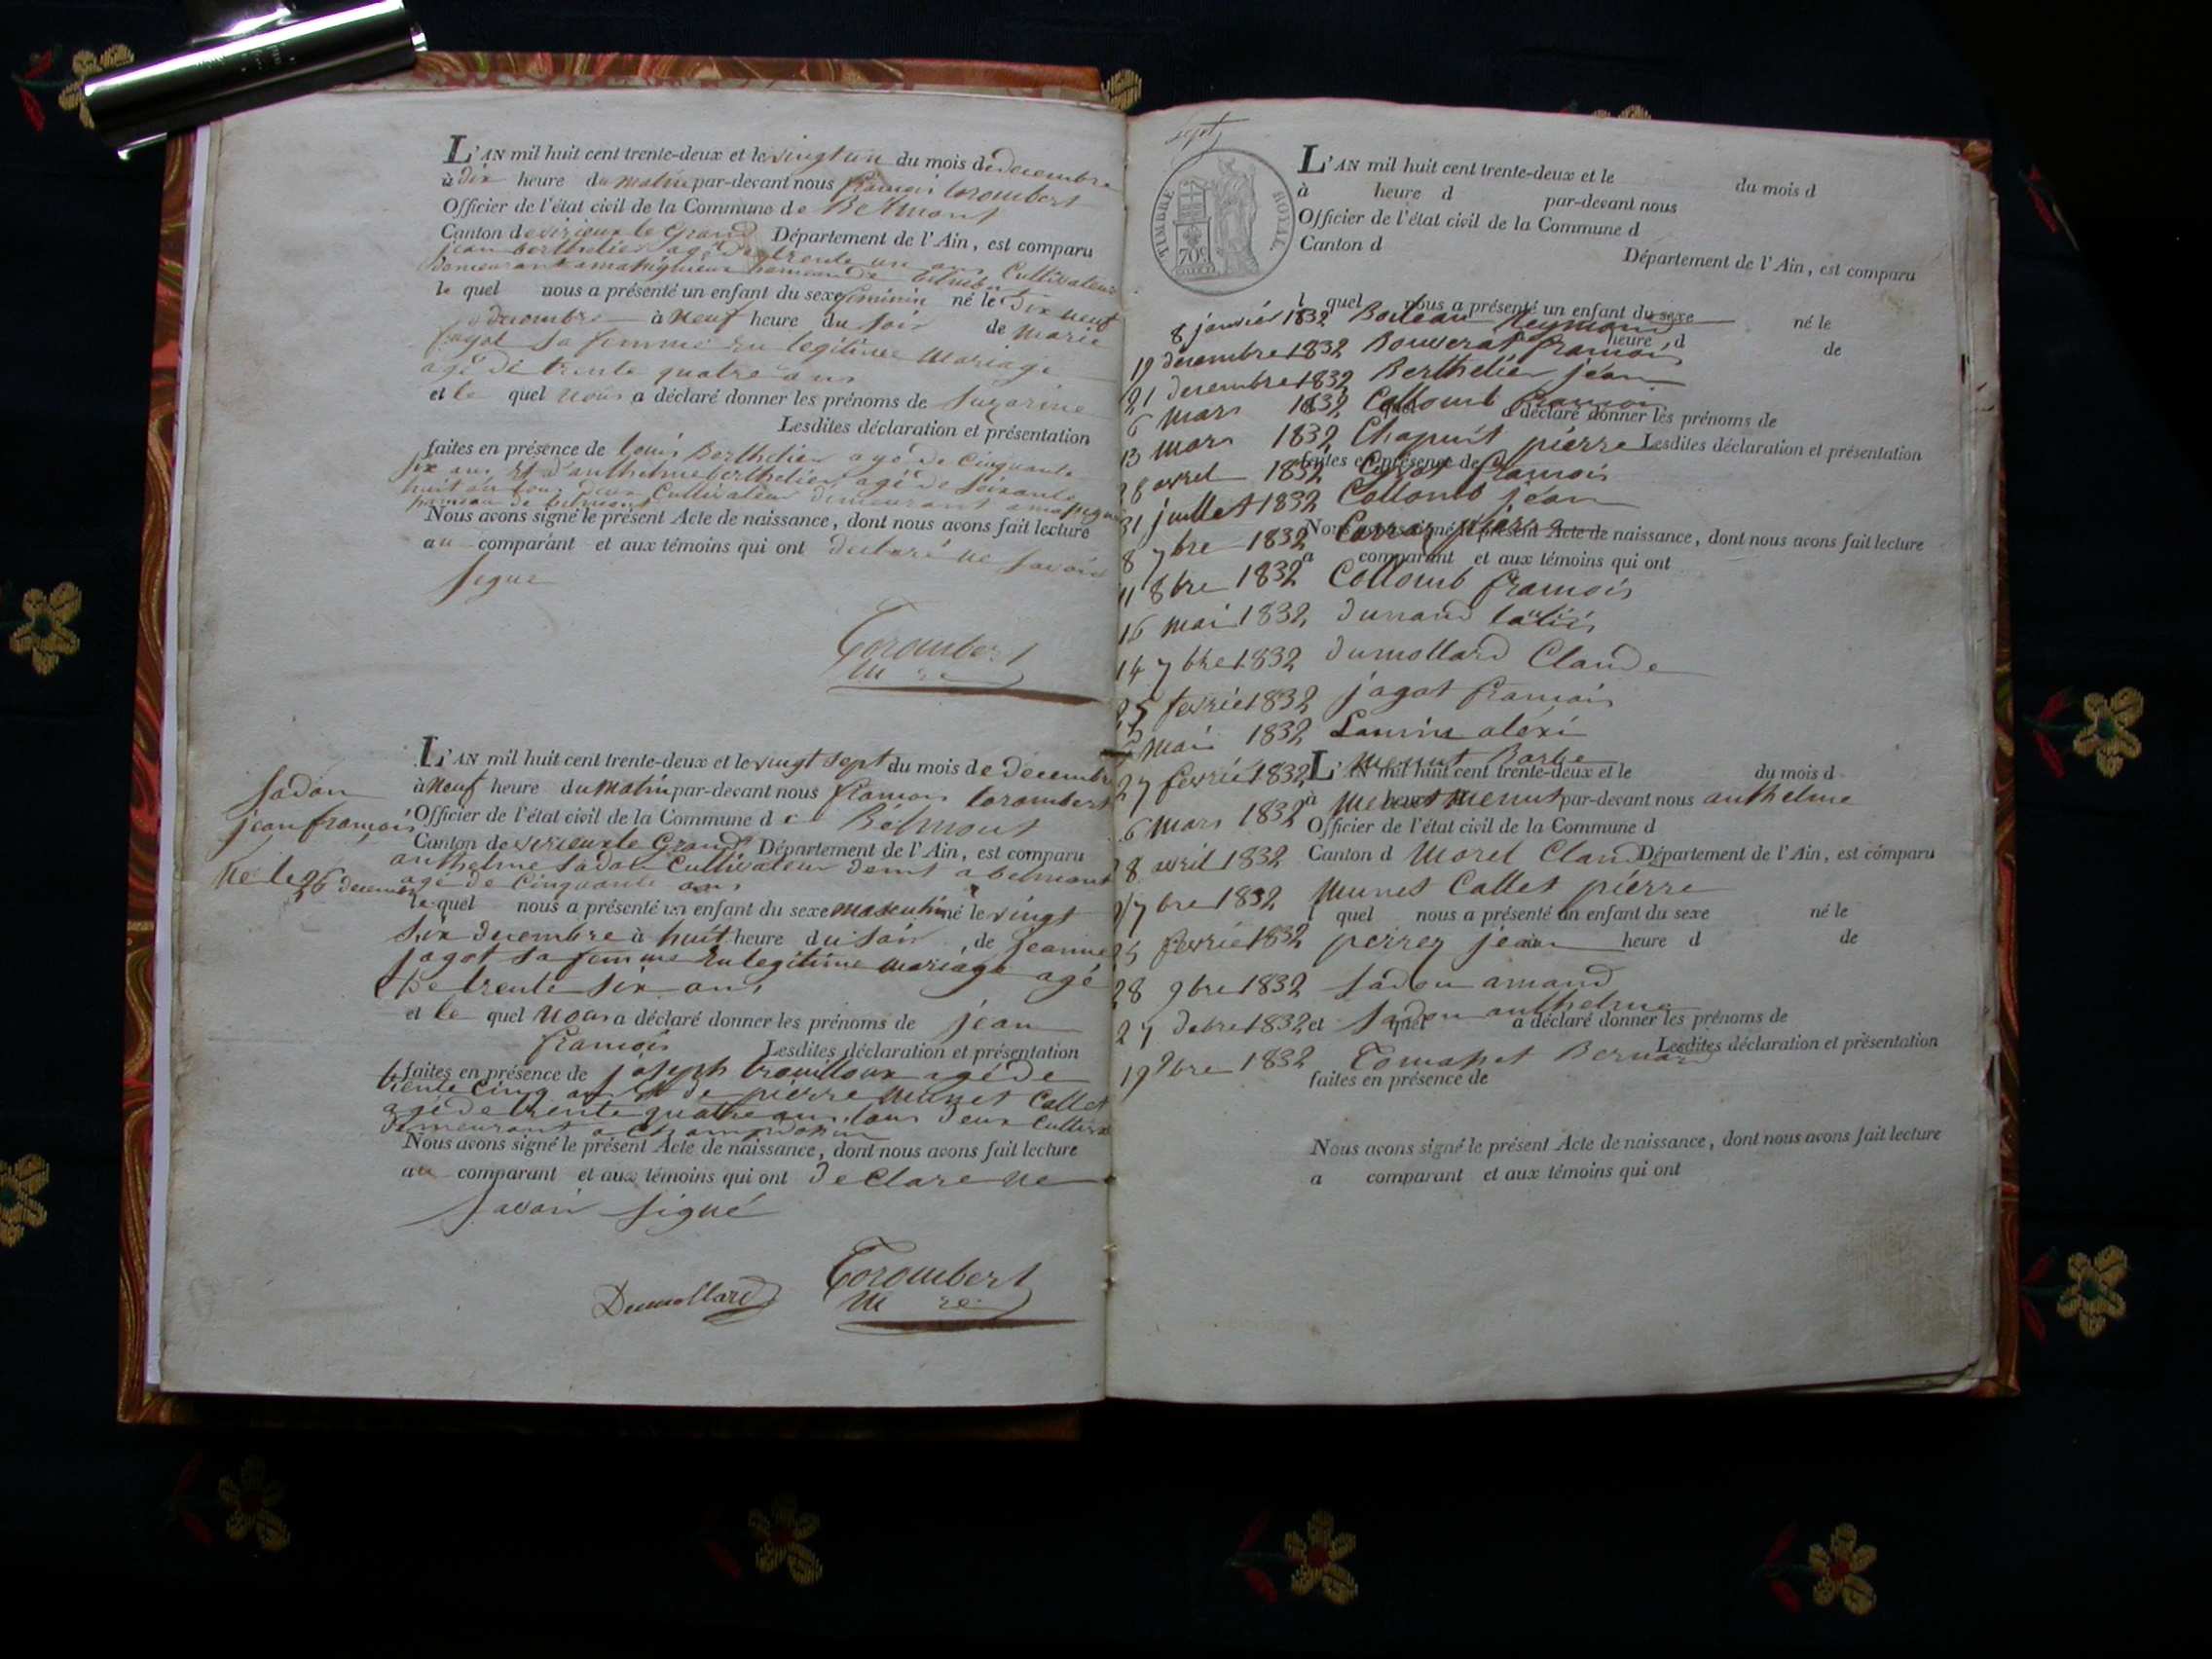 L'AN mil huit cent trente-deux et le vingt un du mois de decembre
à dix heure du matin par-devant nous françois Corombert
Officier de l'état civil de la Commune de Belmont
Canton de virieux le Grand Département de l'Ain, est comparu
jean berthelier agé de trente un ans Cultivateur
demeurant a hameau de belmont
le quel nous a présenté un enfant du sexe feminin né le dix neuf
decembre à neuf heure du soir de marie
sa femme en legitime mariage
agé de trente quatre ans
et le quel nous a déclaré donner les prénoms de
Lesdites déclaration et présentation
faites en présence de louis Berthelier agé de Cinquante
six ans et d'anthelme berthelier agé de soixante
huit ans tous deux Cultivateur demeurant a
hameau de belmont
Nous avons signé le présent Acte de naissance, dont nous avons fait lecture
au comparant et aux témoins qui ont declaré ne savoir
signé
Corombert
M re
Sadon
jean françois
Né le 26 decembre
L'AN mil huit cent trente-deux et le vingt sept du mois de decembre
à neuf heure du matin par-devant nous françois Corombert
Officier de l'état civil de la Commune de Belmont
Canton de virieux le Grand Département de l'Ain, est comparu
anthelme Sadon Cultivateur demt a belmont
agé de Cinquante ans
le quel nous a présenté un enfant du sexe masculin né le vingt
six decembre à huit heure du soir, de jeanne
jagot sa femme en legitime mariage agé
de trente six ans
et le quel nous a déclaré donner les prénoms de jean
françois Lesdites déclaration et présentation
faites en présence de joseph trouilloux agé de
trente Cinq ans et de pierre Munet Callet
agé de trente quatre ans tous deux Cultiva
demeurant a
Nous avons signé le présent Acte de naissance, dont nous avons fait lecture
au comparant et aux témoins qui ont declare ne
savoir signé
Dumollard
Corombert
M re
sept
TIMBRE ROYAL
70c
L'AN mil huit cent trente-deux et le du mois d
à heure d par-devant nous
Officier de l'état civil de la Commune d
Canton d
Département de l'Ain, est comparu
l quel nous a présenté un enfant du sexe né le
8 janvier 1832 Reymond
heure d de
19 decembre 1832 Bouverat françois
21 decembre 1832 Berthelier jean
6 mars 1832 Collomb françois
a déclaré donner les prénoms de
13 mars 1832 Chapuit pierre Lesdites déclaration et présentation
faites en présence de
avril 1832 françois
31 juillet 1832 Collomb jean
Nous avons signé le présent Acte de naissance, dont nous avons fait lecture
8 7bre 1832 Carraz pierre
a comparant et aux témoins qui ont
11 8bre 1832 Collomb françois
16 mai 1832 durand
14 7bre 1832 dumollard Claude
25 fevrie 1832 jagot françois
mai 1832 alexi
27 fevrie 1832 Barbe
L'AN mil huit cent trente-deux et le du mois d
à heure d par-devant nous
6 mars 1832 Menut anthelme
Officier de l'état civil de la Commune d
28 avril 1832 Morel Claud
Canton d Département de l'Ain, est comparu
7bre 1832 Munet Callet pierre
l quel nous a présenté un enfant du sexe né le
25 fevrie 1832 perrez jean
à heure d de
28 9bre 1832 Sadon amand
27 debre 1832 Sadon anthelme
et quel a déclaré donner les prénoms de
Lesdites déclaration et présentation
19 1832 Bernard
faites en présence de
Nous avons signé le présent Acte de naissance, dont nous avons fait lecture
a comparant et aux témoins qui ont